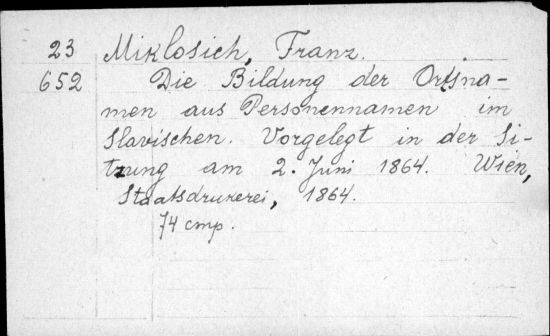 23 Miklosich, Franz.
652 Die Bildung der Ortsna-
men aus Personennamen im
Slavischen. Vorgelegt in der Si-
tzung am 2. Juni 1864. Wien,
Staatsdrukerei, 1864.
74 стр.